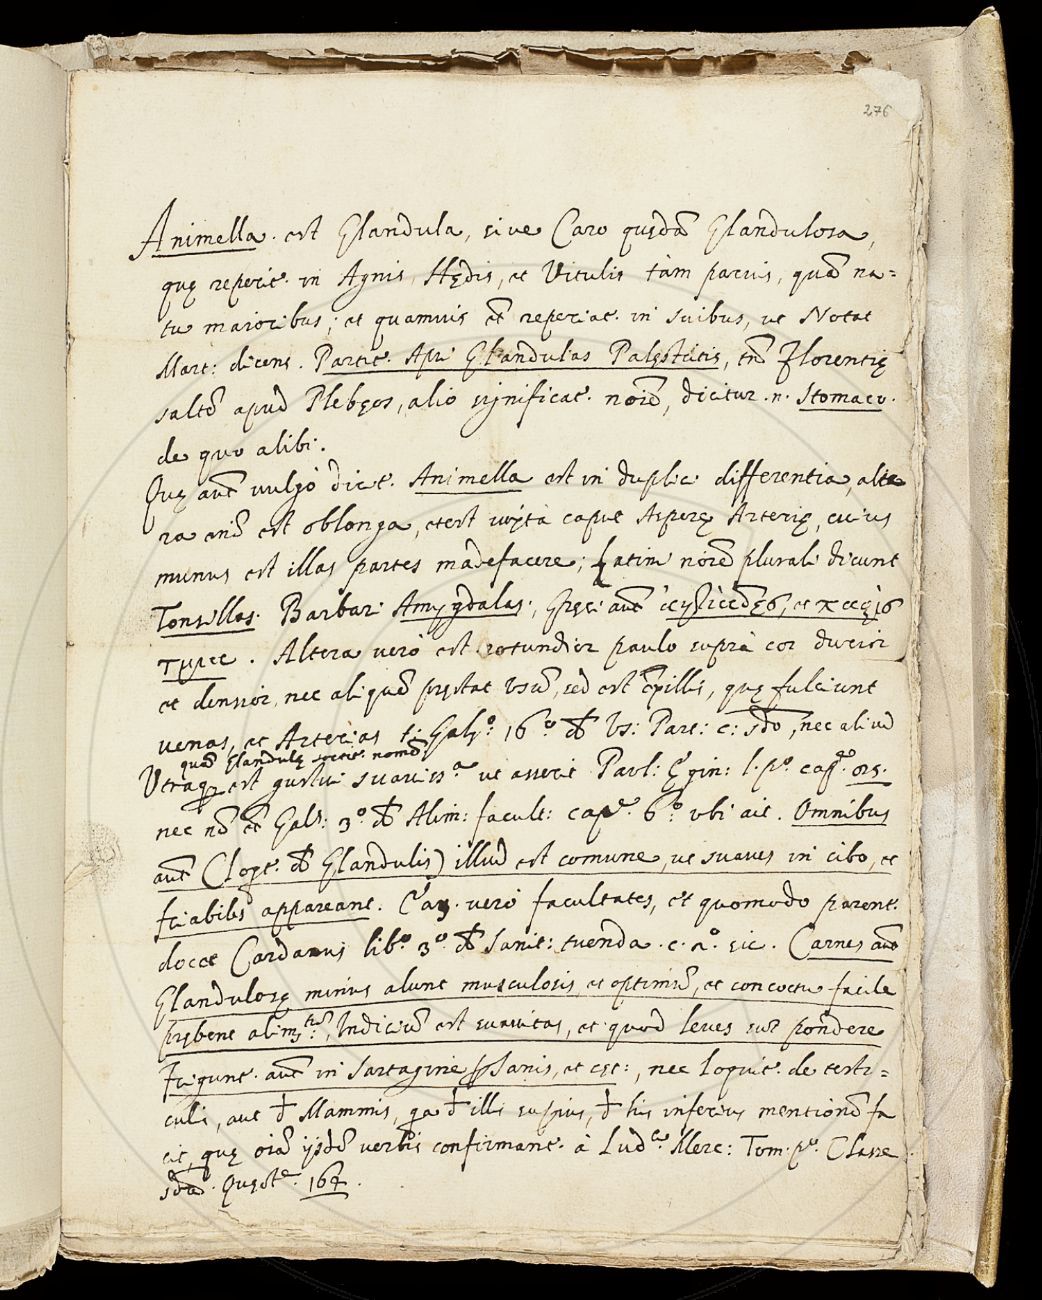 276
Animella. est Glandula, sive Caro quędā Glandulosa,
quę reperit. in Agnis, Hędis, et Vitulis tàm parvis, quā na=
tu maioribus; et quamuis ēt reperiat. in suibus, ut Notat
Mart: dicens. Partit. Apri Glandulas Palęstritis, tn̄ Florentię
saltē apud Plebęos, alio significat. noīe, dicitur .n. Stomaco.
de quo alibi.
Quę aut̄ vulgò dicit. Animella est in duplici differentia, alte
ra enī est oblonga, et est iuxtà caput Asperę Arterię, cuius
munus est illas partes madefacere; Latini noīe plurali dicunt
Tonsillas. Barbari Amygdalas, Gręci aut̄
. Altera verò est rotundior paulo suprà cor durior
et densior, nec aliquē pręstat vsū, sed est illis, quę fulciunt
venas, et Arterias t: Galº. 16º de Vs: Part: c: sdo, nec aliud
quā Glandulę nomē
Vtraq; est gustui suavissª ut asserit Paul: Ęgin: l. pº. capº. 
nec nō ēt Galº: 3º. de Alim: facult: capº. 6º. vbi ait. Omnibus
aut̄ (loqt. de Glandulis) illud est comune, ut suaues in cibo, et
friabiles appareant. Eaȝ. verò facultates, et quomodo parent.
docet Cardanus libº. 3º. de Sanit: tuenda. c. sic. Carnes aut̄
Glandulosę minus alunt musculosis, et optimū, et concoctu facile
prębent alimtū:, Indiciū est suauitas, et quod leues sut pondere
Frigunt. aut̄ in Sartagine , et cęt:, nec loquit. de testi=
culis, aut de Mammis, qa de illis supius, de his inferius mentionē fa
cit, quę oīa ijsdē verbis confirmant. à Lud.co Merc: Tom. pº. Classe
sdā. Quęst.e 167.